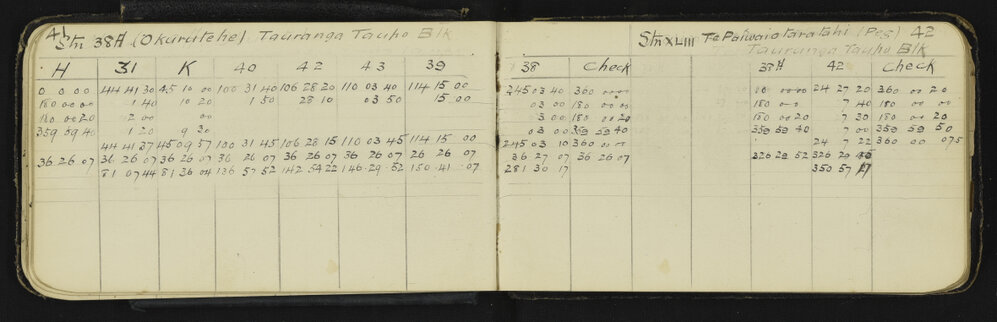 41 Stn 38A (Okurutehe) Tauranga Taupo Blk
H 31 K 40 42 43 39
0 0 0 44 41 30 45 10 00 106 31 40 106 28 20 110 03 40 114 15 00
180 00 00 1 40 10 20 1 50 28 10 03 50 15 00
180 00 20 2 00 00
359 59 40 1 20 9 20
44 41 37 45 09 57 100 31 45 106 28 15 110 03 45 114 15 00
36 26 07 36 26 07 36 26 07 36 26 07 36 26 07 36 26 07 26 26 07
81 07 44 81 36 04 136 57 52 142 54 22 146 29 52 150 41 07
Stn XLIII Te Paiwaiotaratahi (Peg) 42
Tauranga Taupo Blk
38 Check 38A 42 Check
245 03 40 360 00 00 00 00 00 24 27 20 360 00 20
03 00 180 00 00 180 00 7 40 180 00
03 00 180 00 20 180 00 20 7 30 180 00 20
03 00 359 59 40 359 59 40 7 00 359 59 50
245 03 10 360 00 00 24 7 22 360 00 075
36 27 07 36 26 07 326 29 52 326 20
281 30 17 350 57